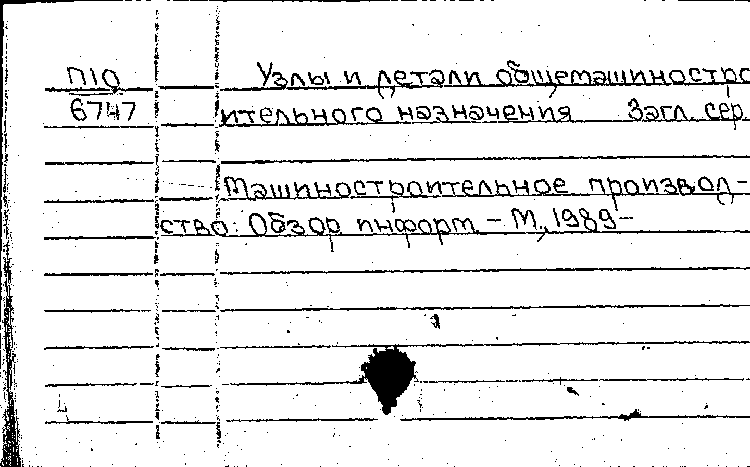 П10
6747
Узлы и детали общемашиностро
ительного назначения Загл. сер.
Машиностроительное производ-
ство: Обзор информ - М., 1989-